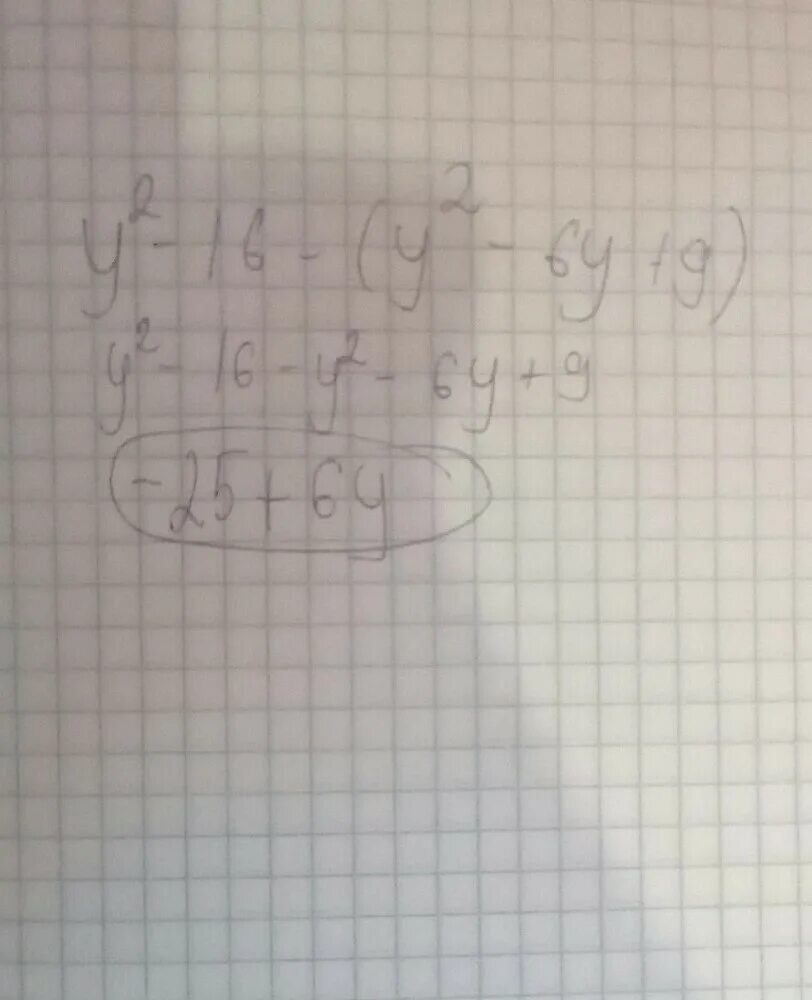 y² - 16 - (y² - 6y + 9)
y² - 16 - y² - 6y + 9
-25 + 6y